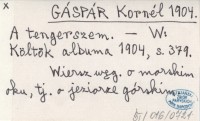 x
GÁSPÁR Kornél 1904.
A tengerszem. — W:
Költők albuma 1904, s. 379.
Wiersz węg. o morskim
oku, tj. o jeziorze górskim